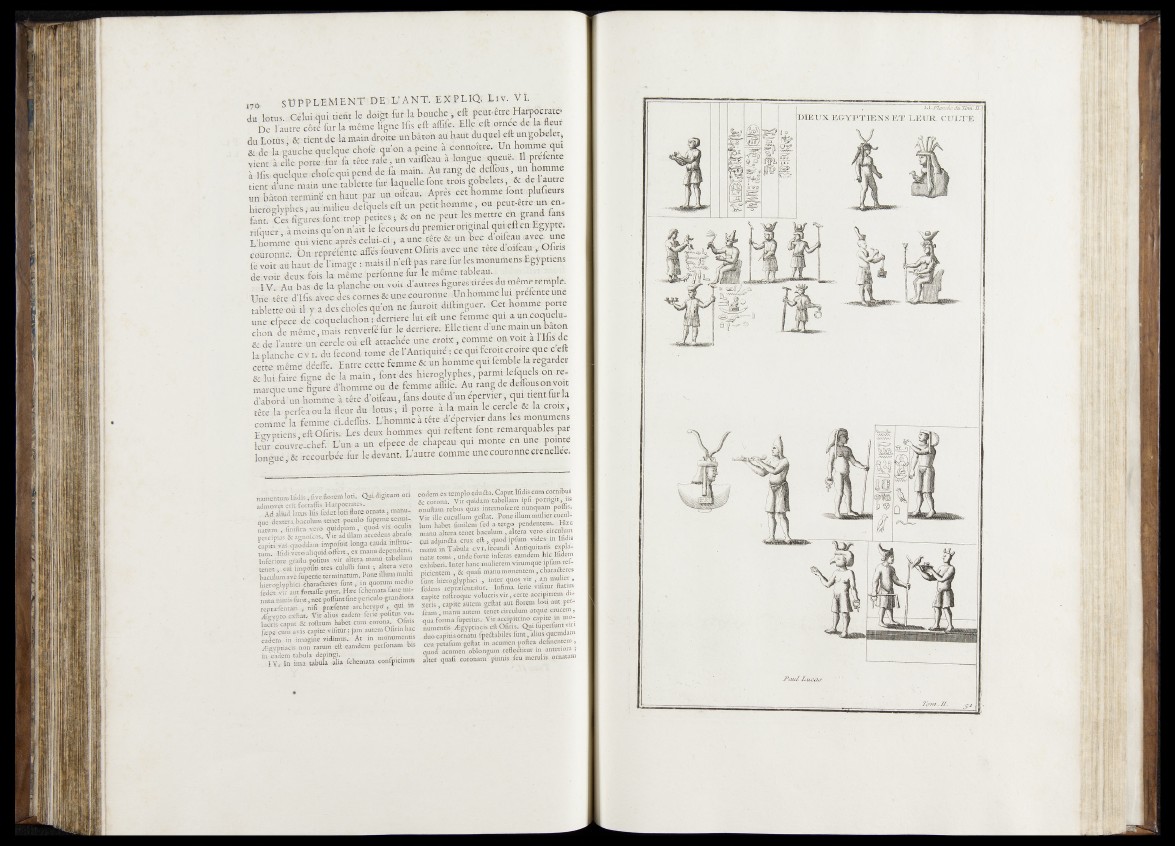 170 SUPPLEMENT DE L'ANT. EXPLIQ. LIV. VI.
du lotus. Celui qui tient le doigt sur la bouche, est peut-être Harpocrate.
De l'autre côté sur la même ligne Isis est assise. Elle est ornée de la fleur
du Lotus, & tient de la main droite un bâton au haut duquel est un gobelet,
& de la gauche quelque chose qu'on a peine à connoitre. Un homme qui
vient à elle porte sur sa tête rase, un vaisseau à longue queuë. Il présente
à Isis quelque chose qui pend de sa main. Au rang de dessous, un homme
tient d'une main une tablette sur laquelle sont trois gobelets, & de l'autre
un bâton terminé en haut par un oiseau. Aprés cet homme sont plusieurs
hieroglyphes, au milieu desquels est un petit homme, ou peut-être un en-
fant. Ces figures sont trop petites; & on ne peut les mettre en grand sans
risquer, à moins qu'on n'ait le secours du premier original qui est en Egypte.
L'homme qui vient aprés celui-ci, a une tête & un bec d'oiseau avec une
couronne. On représente assés souvent Osiris avec une tête d'oiseau, Osiris
se voit au haut de l'image: mais il n'est pas rare sur les monumens Egyptiens
de voir deux fois la même personne sur le même tableau.
IV. Au bas de la planche on voit d'autres figures tirées du même temple.
Une tête d'Isis avec des cornes & une couronne. Un homme lui présente une
tablette où il y a des choses qu'on ne sauroit distinguer. Cet homme porte
une espece de coqueluchon; derriere lui est une femme qui a un coquelu-
chon de même, mais renversé sur le derriere. Elle tient d'une main un bâton
& de l'autre un cercle où est attachée une croix, comme on voit à l'Isis de
la planche CVI. du second tome de l'Antiquité: ce qui feroit croire que c'est
cette même déesse. Entre cette femme & un homme qui semble la regarder
& lui faire signe de la main, sont des hieroglyphes, parmi lesquels on re-
marque une figure d'homme ou de femme assise. Au rang de dessous on voit
d'abord un homme à tête d'oiseau, sans doute d'un épervier, qui tient sur la
tête la persea ou la fleur du lotus; il porte à la main le cercle & la croix,
comme la femme ci-dessus. L'homme à tête d'épervier dans les monumens
Egyptiens, est Osiris. Les deux hommes qui restent sont remarquables par
leur couvre-chef. L'un a un espece de chapeau qui monte en une pointe
longue, & recourbée sur le devant. L'autre comme une couronne crenellée.
namentum Isidis, sive florem loti. Qui digitum ori
admovet erit fortassis Harpocrates.
Ad aliud latus Isis sedet loti flore ornata, manu-
que dextera baculum tenet poculo superne termi-
natum, sinistra vero quidpiam, quod vix oculis
percipias & agnoscas. Vir ad illam accedens abrasi
capitis vas quoddam imposuit longa cauda instruc-
tum. Isidi vero aliquid offert, ex manu dependens.
Inferiore gradu positus vir altera manu tabellam
tenet, cui impositi tres calussi sunt, altera vero
baculum ave superne terminatum. Pone illum multi
hieroglyphici characteres sunt, in quorum medio
sedet vir aut fortasse puer. Hæc schemata sane mi-
nima minis sunt, nec possunt sine periculo grandiora
repræsentari, nisi præsente archetypo, qui in
Ægypto exstat. Vir alius eadem serie positus vo-
lucris caput & rostrum habet cum corona. Osiris
sæpe cum avis capite visitur; jam autem Osirin hac
eadem in imagine vidimus. At in monumentis
Ægyptiacis non rarum est eandem personam bis
in eadem tabula depingi.
IV. In ima tabula alia schemata conspicimus
eodem ex templo educta. Caput Isidis cum cornibus
& corona. Vir quidam tabellam ipsi porrigit, iis
onustam rebus quas internoscere nunquam possis.
Vir ille cucullum gestat. Pone illum mulier cucul-
lum habet similem sed a tergo pendentem. Hæc
manu altera tenet baculum, altera vero circulum
cui adjuncta crux est, quod ipsum vides in Isidis
manu in Tabula CVI. secundi Antiquitatis expla-
natæ tomi, unde forte inferas eamdem hic Isidem
exhiberi. Inter hanc mulierem virumque ipsam res-
picientem, & quasi manu nomentem, characteres
sunt hieroglyphici, inter quos vir, an mulier,
sedens repræsentatur. Infima serie visitur statim
capite rostroque volucris vir, certe accipitris di-
xeris, capite autem gestat aut florem loti aut per-
seam, manu autem tenet circulum atque crucem,
qua forma superius. Vir accipitrino capite in mo-
numentis Ægyptiacis est Osiris. Qui supersunt viri
duo capitis ornatu spectabiles sunt, alius quemdam
ceu petasum gestat in acumen postea desinentem,
quod acumen oblongum reflectitur in anteriora;
alter quasi coronam pinnis seu merulis ornatam
DIEUX EGYPTIENS ET LEUR CULTE
Paul Lucas
Tom. II.